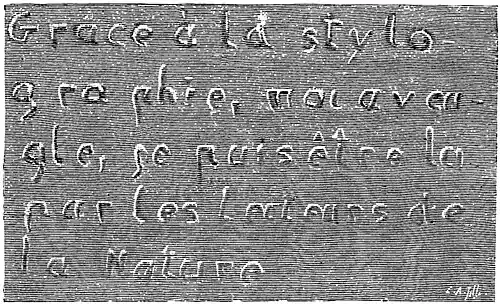 Grâce à la stylo-
graphie, moi aveu-
gle, je puis être lu
par les Lecteurs de
la Nature